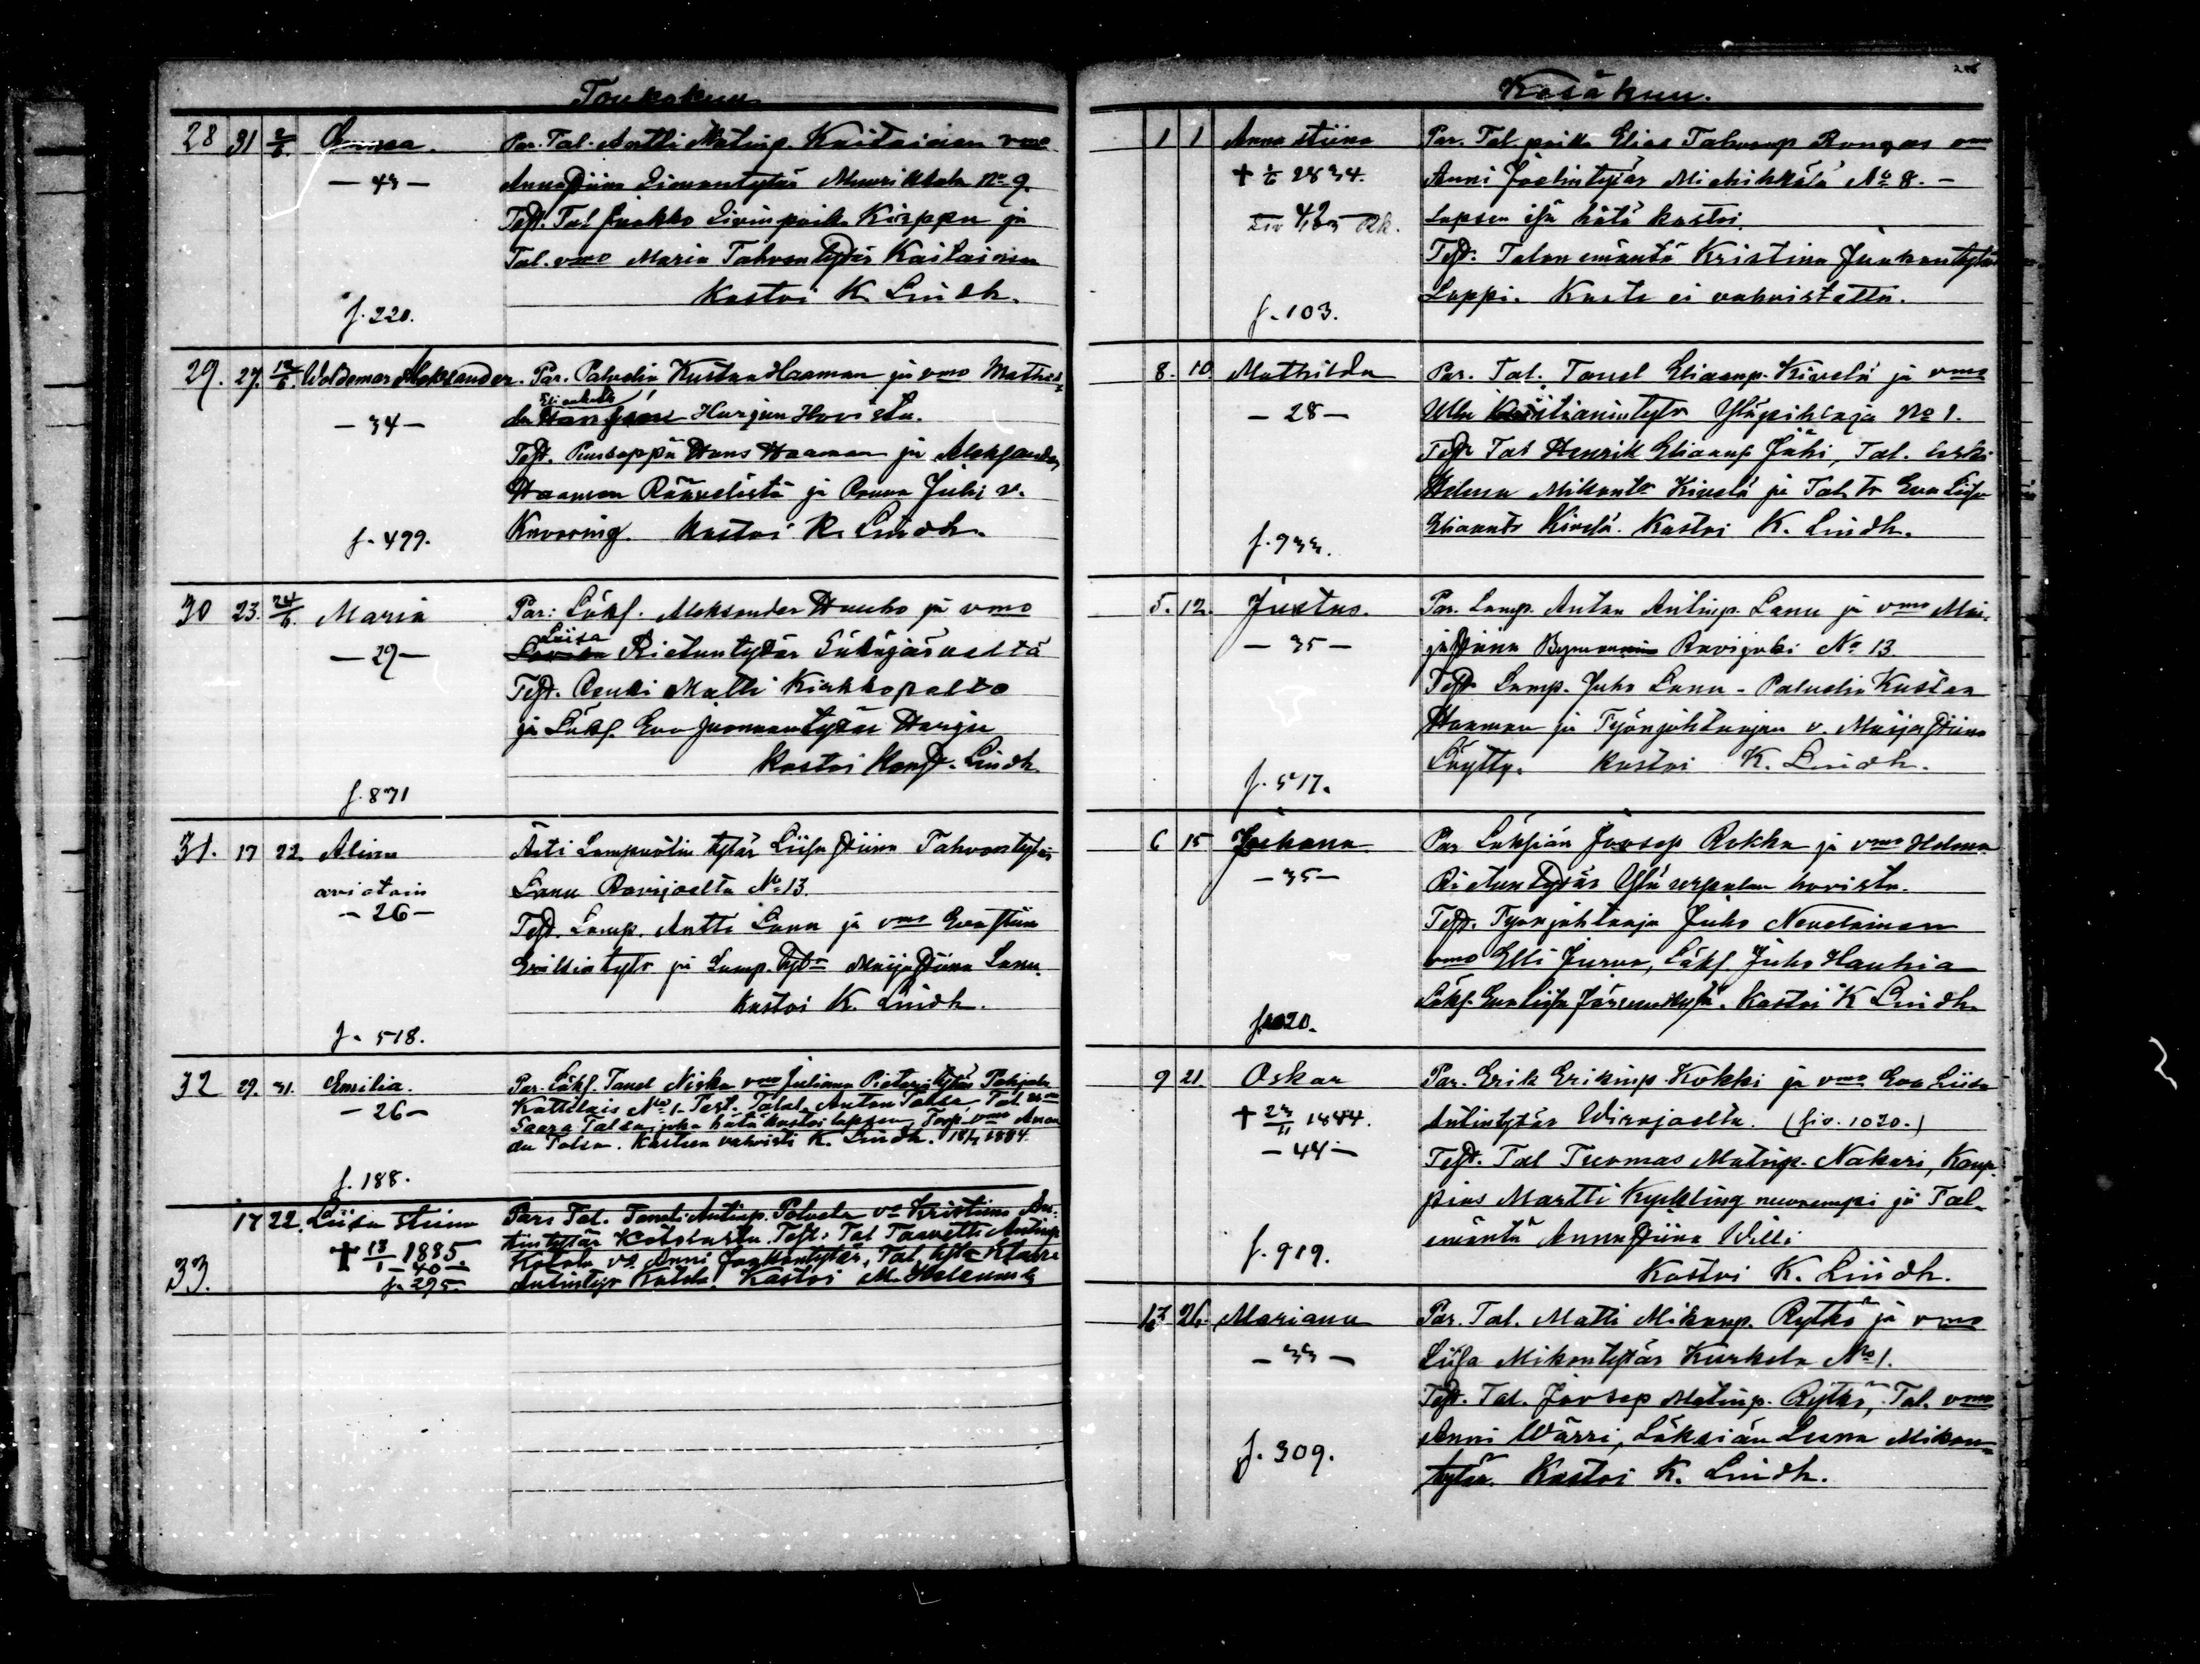 Toukokuu
28 31 2/6. Anna. Par. Tal. Antti Matinp. Kaitainen vmo
— 43 — Anna Stiina Simontytär Muurikkala No 9.
Test. Tal. Jaakko Siminpoika Kirppu ja
Tal. vmo Maria Tahvontytär Kaitainen
Kastoi K. Lindh.
f. 220.
29. 27. 12/6. Woldemar Aleksander. Par. Palvelia Kustaa Haaman ja vmo Mathil-
Elisabeth
— 34 — da Harjun Hovista.
Test. Puuseppä Hans Haaman ja Aleksander
Haaman Räävelistä ja Rouva Juli v.
Knorring. Kastoi K. Lindh.
f. 499.
30 23. 24/6. Maria Par: Läks. Aleksander Hauho ja vmo
Liisa
— 29 — Lovisa Rietuntytär Säkäjärveltä
Test. Renki Matti Kirkkopelto
ja Läks. Eva Juonaantytär Harju
Kastoi Konst. Lindh.
f. 871
31. 17 22. Alina Äiti Lampuotin tytär Liisa Stiina Tahvontytär
aviotoin Lanu Ravijoelta No 13.
— 26 — Test. Lamp. Antti Lanu ja vmo Eva Stiina
Erikintytr ja Lamp. tytr Maija Stiina Lanu.
Kastoi K. Lindh.
f. 518.
32 29. 31. Emilia. Par. Läks. Tanel Niska vmo Juliana Pieterintytär Pohjola
— 26 — Kattelais No 1. Test. Talol. Anton Talsa Tal. vmo
Saara Talsa joka hätäkastoi lapsen, Torp. vmo Aman-
da Talsa. Kasteen vahvisti K. Lindh. 18/7 1884.
f. 188.
33. 17 22. Liisa Stiina Par. Tal. Taneli Antinp. Paloela vo Kristiina An-
† 13/1 1885 tintytär Kotolasta. Test: Tal. Taavetti Antinp.
— 40 — Kotola vo Anni Jaakontytär, Tal. tytr Klaara
f. 295. Antintyr Kotola. Kastoi M. Helenius
Kesäkuu.
1 1 Anna Stiina Par. Tal. poika Elias Tahvonp Rongas vmo
† 5/6 2834. Anni Joelintytär Miehikkälä No 8. —
— 42 — Rk. Lapsen isä hätä kastoi.
Test. Talon emäntä Kristina Jaakontytär
Lappi. Kaste ei vahvistettu.
f. 103.
8. 10. Mathilda Par. Tal. Tanel Eliaanp. Kivelä ja vmo
— 28 — Ulla Kristianintytr Yläpihlaja No 1.
Test Tal Henrik Eliaanp Jähi, Tal. leski
Helena Mikontr Kivelä ja Tal. tr Eva Liisa
Eliaantr Kivelä. Kastoi K. Lindh.
f. 933.
5. 12. Justus. Par. Lamp. Anton Antinp. Lanu ja vmo Mai-
— 35 — ja Stiina Ravijoki No 13
Test Lamp. Juho Lanu - Palvelia Kustaa
Haaman ja Työnjohtaajan v. Maija Stiina
Löytty. Kastoi K. Lindh.
f. 517.
6 15 Johana. Par Läksiän Joosep Rokka ja vmo Helena
— 35 — Rietuntytär Ylä urpalan hovista.
Test. Työnjohtaaja Juho Nevelainen
vmo Elli Jurva, Läks. Juho Hauhia
Läks. Eva Liisa Kastoi K Lindh.
f. 1020.
9 21. Oskar Par. Erik Erikinp. Kokki ja vmo Eva Liisa
† 23/11 1884. Antintytär Wirojoelta. (Siv. 1030.)
— 44 — Test. Tal Tuomas Matinp. Nakari, Kaup-
pias Martti Kyckling nuorempi ja Tal-
emäntä Anna Stiina Willi
f. 919. Kastoi K. Lindh.
13 26. Mariana Par. Tal. Matti Mikonp. Rytkö ja vmo
— 33 — Liisa Mikontytär Kurkela No 1.
Test. Tal. Joosep Matinp. Rytkö, Tal. vmo
Anni Wärri, Läksiän Leena Mikon-
tytär. Kastoi K. Lindh.
f. 309.